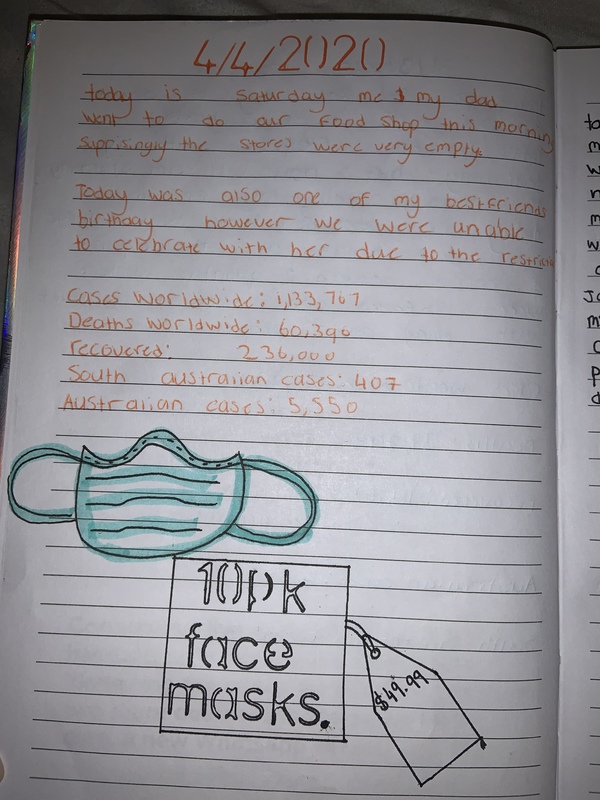 4/4/2020
today is Saturday me & my dad
went to do our food shop this morning
suprisingly the stores were very empty.
Today was also one of my bestfriends
birthday however we were unable
to celebrate with her due to the
Cases worldwide: 1,133,767
Deaths worldwide: 60,390
recovered: 236,000
South australian cases: 407
Australian cases: 5,550
10pk
face
masks.
$49.99